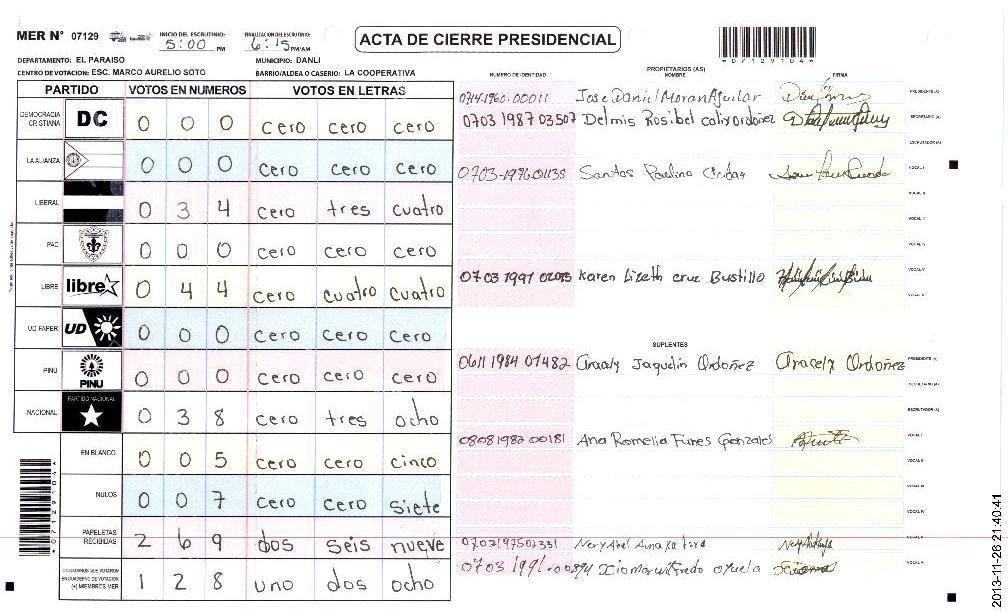 MER Nº 07129 INICIO DEL ESCRUTINIO: 5:00 PM FINALIZACION DEL ESCRUTINIO: 6:15 PM/AM ACTA DE CIERRE PRESIDENCIAL
*07129104*
DEPARTAMENTO: EL PARAISO MUNICIPIO: DANLI
CENTRO DE VOTACION: ESC. MARCO AURELIO SOTO BARRIO/ALDEA O CASERIO: LA COOPERATIVA
PARTIDO VOTOS EN NUMEROS VOTOS EN LETRAS
DEMOCRACIA CRISTIANA DC 0 0 0 cero cero cero
LA ALIANZA 0 0 0 cero cero cero
LIBERAL 0 3 4 cero tres cuatro
PAC 0 0 0 cero cero cero
LIBRE libre 0 4 4 cero cuatro cuatro
UD FAPER UD 0 0 0 cero cero cero
PINU PINU 0 0 0 cero cero cero
NACIONAL PARTIDO NACIONAL 0 3 8 cero tres ocho
EN BLANCO 0 0 5 cero cero cinco
NULOS 0 0 7 cero cero siete
PAPELETAS RECIBIDAS 2 6 9 dos seis nueve
CIUDADANOS QUE VOTARON EN CUADERNO DE VOTACION (+) MIEMBROS MER 1 2 8 uno dos ocho
*07129104*
PROPIETARIOS (AS)
NUMERO DE IDENTIDAD NOMBRE FIRMA
0714-1960-00011 Jose Daniel Moran Aguilar PRESIDENTE (A)
0703 1987 03507 Delmis Rosibel calix ordoñez SECRETARIO (A)
ESCRUTADOR (A)
Santos Paulino VOCAL I
VOCAL II
VOCAL III
VOCAL IV
0703 1997 Karen Lizeth cruz Bustillo VOCAL V
SUPLENTES
0611 1984 01482 Aracely Jaquelin Ordoñez Aracely Ordoñez PRESIDENTE (A)
SECRETARIO (A)
ESCRUTADOR (A)
0808 1982 00181 Ana Romelia Funes Gonzales VOCAL I
VOCAL II
VOCAL III
VOCAL IV
Nery Abel VOCAL V
0703
2013-11-26 21:40:41